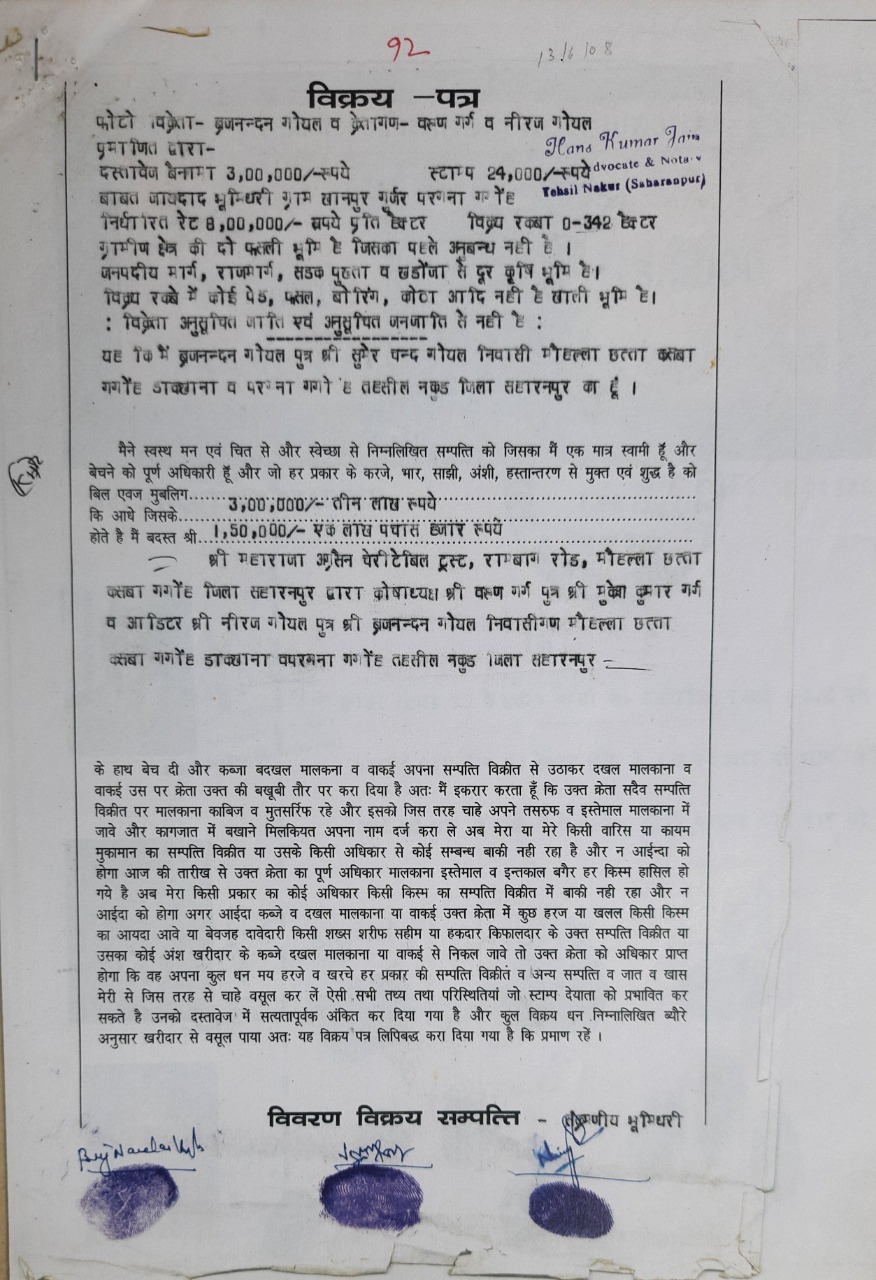 92
13/6/08
विक्रय -पत्र
फोटो विक्रेता- ब्रजनन्दन गोयल व क्रेतागण- वरूण गर्ग व नीरज गोयल
प्रमाणित द्वारा-
Hans Kumar Jain
दस्तावेज बैनामा 3,00,000/-रूपये स्टाम्प 24,000/-रूपये
Advocate & Notary
Tehsil Nakur (Saharanpur)
बाबत जायदाद भूमिधरी ग्राम खानपुर गुर्जर परगना गंगोह
निर्धारित रेट 8,00,000/- रूपये प्रति हैक्टर विक्रय रकबा 0-342 हैक्टर
ग्रामीण क्षेत्र की दो फसली भूमि है जिसका पहले अनुबन्ध नही है ।
जनपदीय मार्ग, राजमार्ग, सडक पुख्ता व खडोंजा से दूर कृषि भूमि है।
विक्रय रकबे में कोई पेड, फसल, बोरिंग, कोठा आदि नही है खाली भूमि है।
: विक्रेता अनुसूचित जाति एवं अनुसूचित जनजाति से नही है :
यह कि मैं ब्रजनन्दन गोयल पुत्र श्री सुमेर चन्द गोयल निवासी मौहल्ला छत्ता कसबा
गंगोह डाकखाना व परगना गंगोह तहसील नकुड जिला सहारनपुर का हूँ ।
मैने स्वस्थ मन एवं चित से और स्वेच्छा से निम्नलिखित सम्पत्ति को जिसका मैं एक मात्र स्वामी हूँ और
बेचने को पूर्ण अधिकारी हूँ और जो हर प्रकार के करजे, भार, साझी, अंशी, हस्तान्तरण से मुक्त एवं शुद्ध है को
बिल एवज मुबलिग 3,00,000/- तीन लाख रूपये
कि आधे जिसके
होते है मैं बदस्त श्री 1,50,000/- एक लाख पचास हजार रूपये
श्री महाराजा अग्रसैन चेरीटेबिल ट्रस्ट, रामबाग रोड, मौहल्ला छत्ता
कसबा गंगोह जिला सहारनपुर द्वारा कोषाध्यक्ष श्री वरूण गर्ग पुत्र श्री मुकेश कुमार गर्ग
व आडिटर श्री नीरज गोयल पुत्र श्री ब्रजनन्दन गोयल निवासीगण मौहल्ला छत्ता
कसबा गंगोह डाकखाना वपरगना गंगोह तहसील नकुड जिला सहारनपुर
के हाथ बेच दी और कब्जा बदखल मालकना व वाकई अपना सम्पत्ति विक्रीत से उठाकर दखल मालकाना व
वाकई उस पर क्रेता उक्त की बखूबी तौर पर करा दिया है अतः मैं इकरार करता हूँ कि उक्त क्रेता सदैव सम्पत्ति
विक्रीत पर मालकाना काबिज व मुतसर्रिफ रहे और इसको जिस तरह चाहे अपने तसरुफ व इस्तेमाल मालकाना में
जावे और कागजात में बखाने मिलकियत अपना नाम दर्ज करा ले अब मेरा या मेरे किसी वारिस या कायम
मुकामान का सम्पत्ति विक्रीत या उसके किसी अधिकार से कोई सम्बन्ध बाकी नही रहा है और न आईन्दा को
होगा आज की तारीख से उक्त क्रेता का पूर्ण अधिकार मालकाना इस्तेमाल व इन्तकाल बगैर हर किस्म हासिल हो
गये है अब मेरा किसी प्रकार का कोई अधिकार किसी किस्म का सम्पत्ति विक्रीत में बाकी नही रहा और न
आईदा को होगा अगर आईदा कब्जे व दखल मालकाना या वाकई उक्त क्रेता में कुछ हरज या खलल किसी किस्म
का आयदा आवे या बेवजह दावेदारी किसी शख्स शरीफ सहीम या हकदार किफालदार के उक्त सम्पत्ति विक्रीत या
उसका कोई अंश खरीदार के कब्जे दखल मालकाना या वाकई से निकल जावे तो उक्त क्रेता को अधिकार प्राप्त
होगा कि वह अपना कुल धन मय हरजे व खरचे हर प्रकार की सम्पत्ति विक्रीत व अन्य सम्पत्ति व जात व खास
मेरी से जिस तरह से चाहे वसूल कर लें ऐसी सभी तथ्य तथा परिस्थितियां जो स्टाम्प देयाता को प्रभावित कर
सकते है उनको दस्तावेज में सत्यतापूर्वक अंकित कर दिया गया है और कुल विक्रय धन निम्नालिखित ब्यौरे
अनुसार खरीदार से वसूल पाया अतः यह विक्रय पत्र लिपिबद्ध करा दिया गया है कि प्रमाण रहें ।
विवरण विक्रय सम्पत्ति - संक्रमणीय भूमिधरी